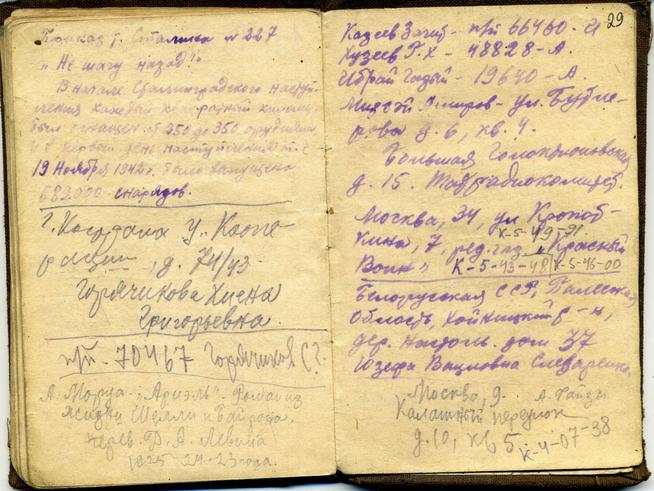 Приказ т. Сталина № 227
"Ни шагу назад!"
В начале Сталинградского наступ-
ления каждый квадратный километ
был оснащен от 250 до 350 орудиями
и в первый день наступления т.е.
19 Ноября 1942 г. было выпущено
689.000 снарядов.
г. Кинуллаха у. Коопе-
рации, д. 74/43
Горячикова Хиена
Григорьевна.
п/п. 70467 Горячиков С.
А. Моруа "Ариэль" - Роман из
жизни Шелли и Байрона.
перев. Левина
1925 года.
29
Казеев Загид - п/п 66460-
Хузеев Г.Х - 48828-А.
Ибрай Гази - 19640-А.
Мирсай Амиров - ул. Бутле-
рова д. 6, кв. 4.
Большая Голокрионовская
д. 15. Татрадиокомитет.
Москва, 34, ул Кропот-
К-5-49-91.
кина, 7, ред. газ. "Красный
Воин" К-5-43-48 К-5-46-00
Белорусская ССР, Полесская
Область, Хойникский р-н,
дер. дом 37
Юзефа Вацловна
Москва, 9. А. Файзи
Калашный переулок
д. 10, кв 5 К-4-07-38